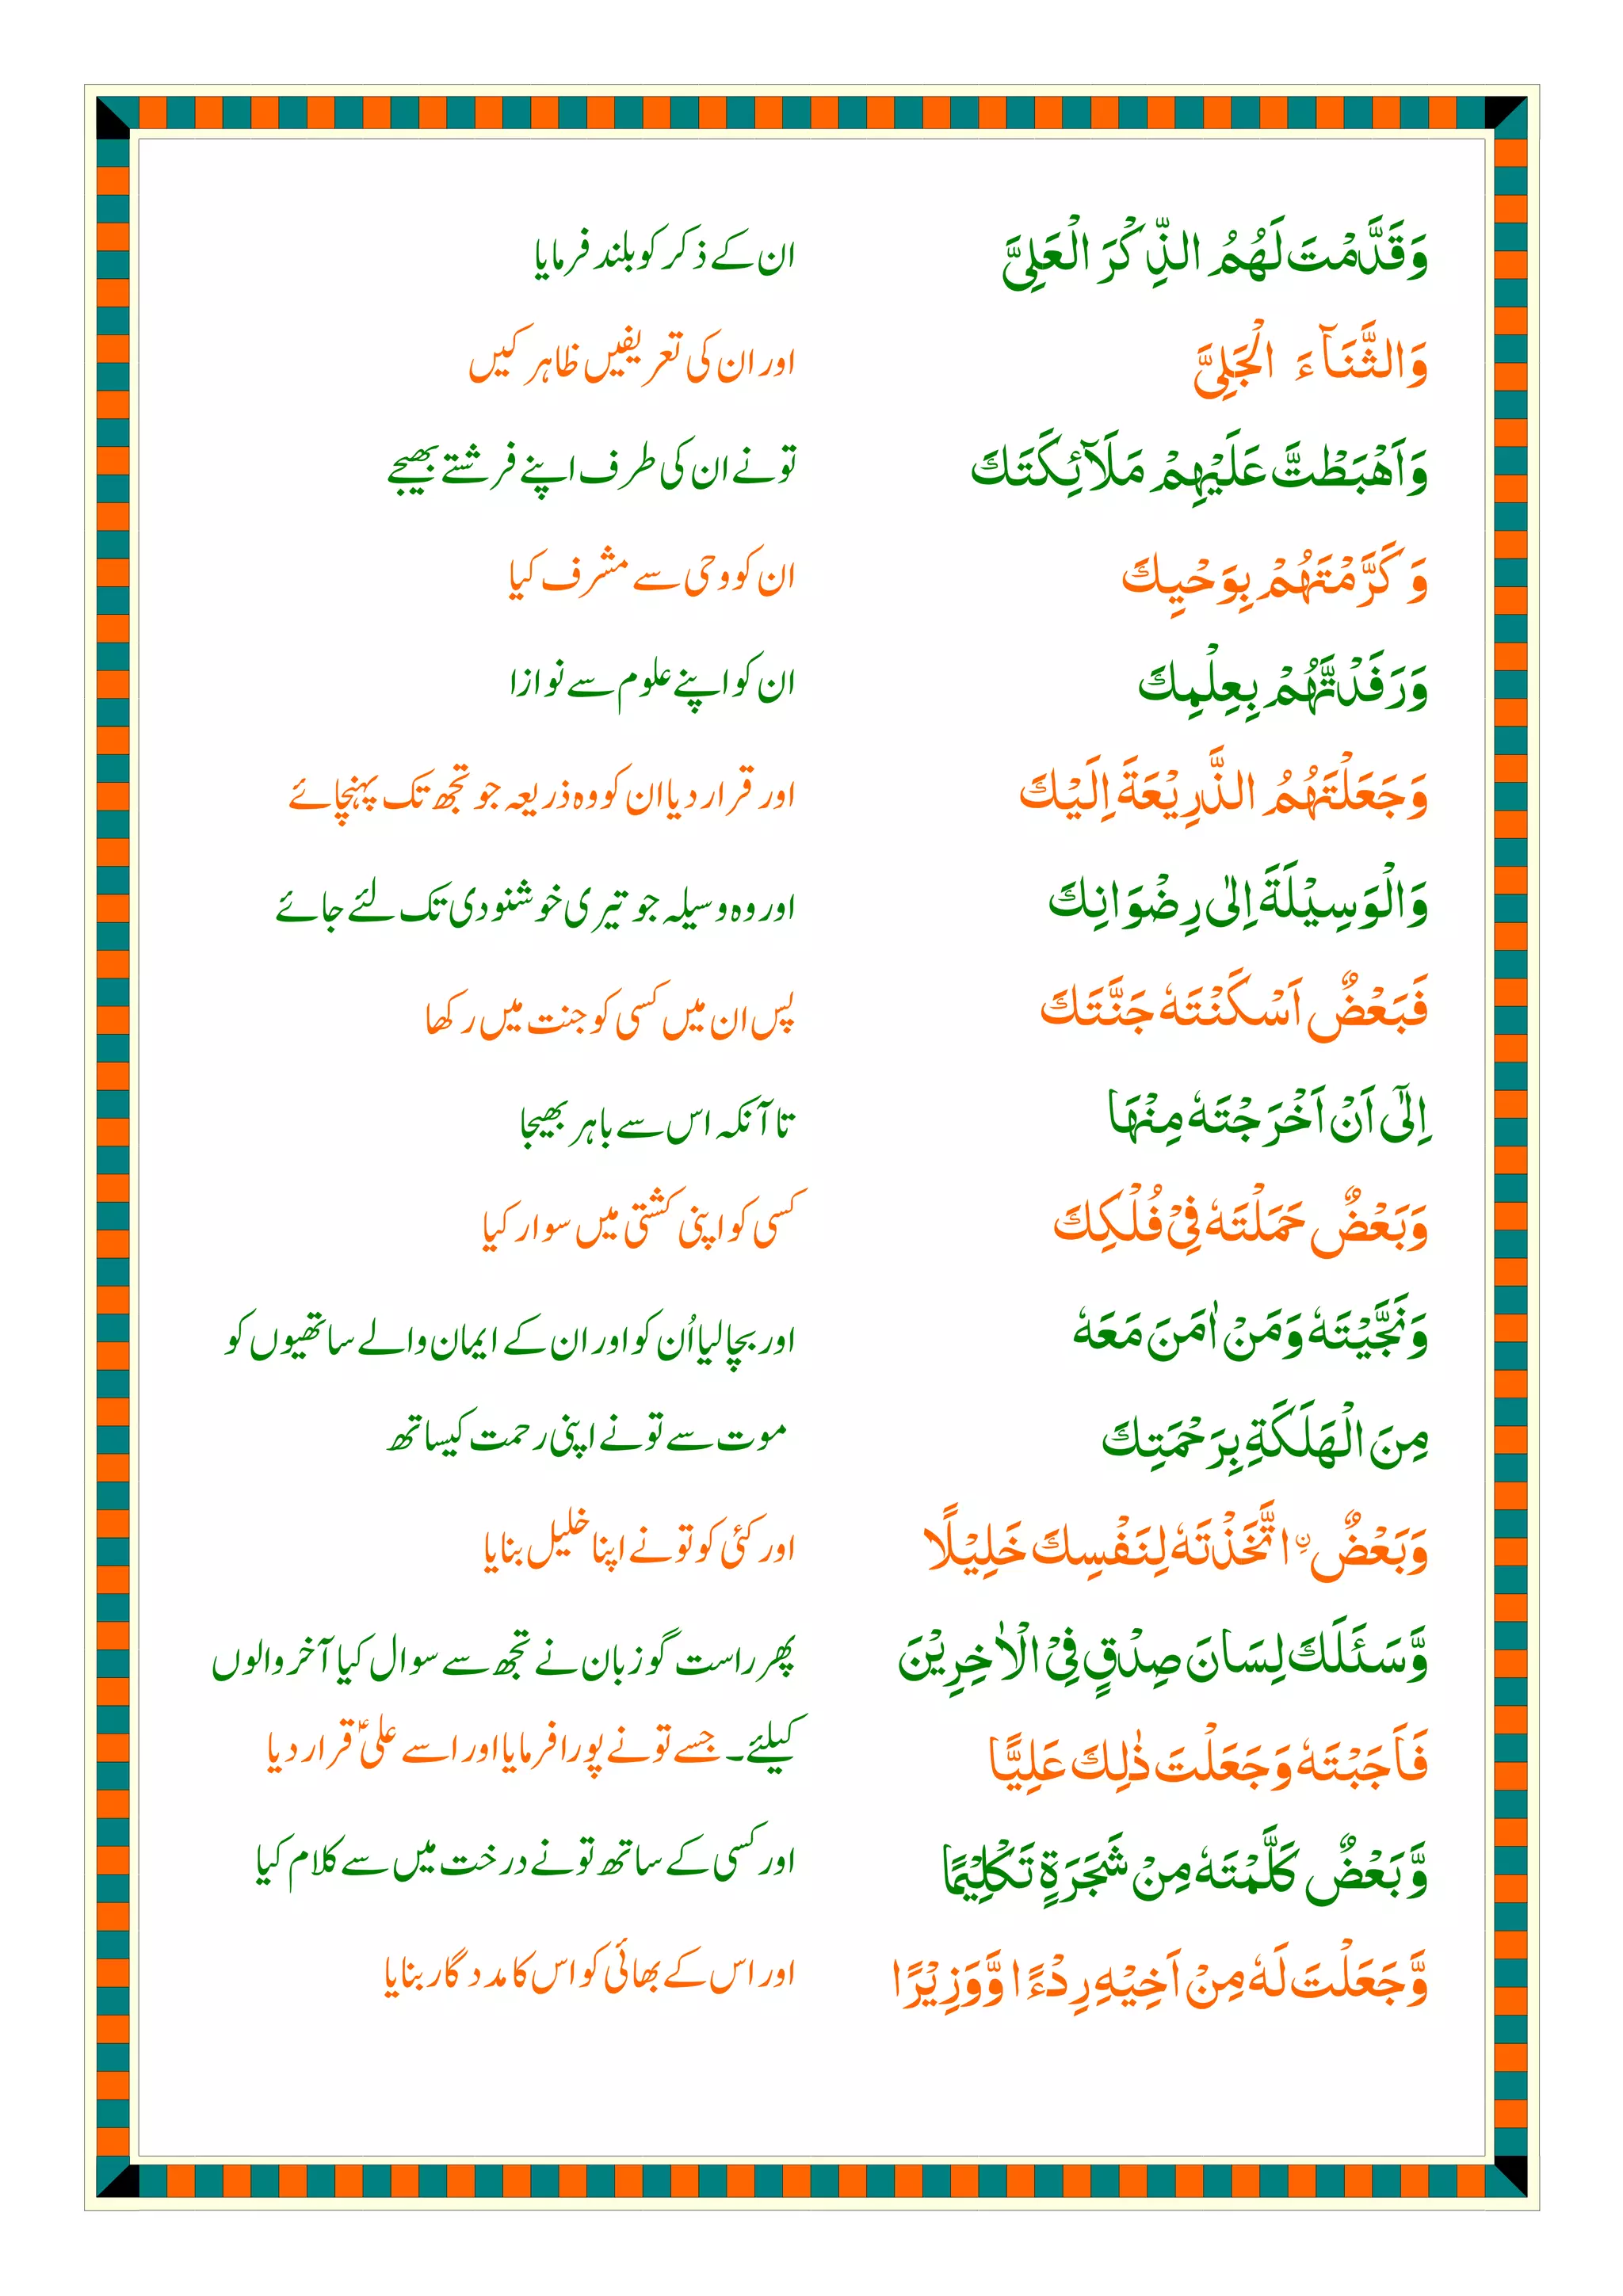 وَقَدَّمْتَ لَهُمُ الذِّكْرَ الْعَلِيَّ
ان کے ذکر کو بلند فرمایا
وَالثَّنَآءَ الْجَلِيَّ
اور ان کی تعریفیں ظاہر کیں
وَاَهْبَطْتَّ عَلَيْهِمْ مَلَآئِكَتَكَ
تونے ان کی طرف اپنے فرشتے بھیجے
وَ كَرَّمْتَهُمْ بِوَحْيِكَ
ان کو وحی سے مشرف کیا
وَرَفَدْتَّهُمْ بِعِلْمِكَ
ان کو اپنے علوم سے نوازا
وَجَعَلْتَهُمُ الذَّرِيْعَةَ اِلَيْكَ
اور قرار دیا ان کو وہ ذریعہ جو تجھ تک پہنچائے
وَالْوَسِيْلَةَ اِلٰى رِضْوَانِكَ
اور وہ وسیلہ جو تیری خوشنودی تک لئے جائے
فَبَعْضٌ اَسْكَنْتَهٗ جَنَّتَكَ
پس ان میں کسی کو جنت میں رکھا
اِلٰٓى اَنْ اَخْرَجْتَهٗ مِنْهَا
تا آنکہ اس سے باہر بھیجا
وَبَعْضٌ حَمَلْتَهٗ فِيْ فُلْكِكَ
کسی کو اپنی کشتی میں سوار کیا
وَنَجَّيْتَهٗ وَمَنْ اٰمَنَ مَعَهٗ
اور بچا لیا اُن کو اور ان کے ایمان والے ساتھیوں کو
مِنَ الْهَلَكَةِ بِرَحْمَتِكَ
موت سے تو نے اپنی رحمت کیساتھ
وَبَعْضٌ ۣاتَّخَذْتَهٗ لِنَفْسِكَ خَلِيْلًا
اور کئی کو تو نے اپنا خلیل بنایا
وَّسَئَلَكَ لِسَانَ صِدْقٍ فِي الْاٰخِرِيْنَ
پھر راست گو زبان نے تجھ سے سوال کیا آخر والوں
فَاَجَبْتَهٗ وَجَعَلْتَ ذٰلِكَ عَلِيًّا
کیلئے۔ جسے تو نے پورا فرمایا اور اسے علیؑ قرار دیا
وَّبَعْضٌ كَلَّمْتَهٗ مِنْ شَجَرَةٍ تَكْلِيْمًا
اور کسی کے ساتھ تو نے درخت میں سے کلام کیا
وَّجَعَلْتَ لَهٗ مِنْ اَخِيْهِ رِدْءًا وَّوَزِيْرًا
اور اس کے بھائی کو اس کا مددگار بنایا